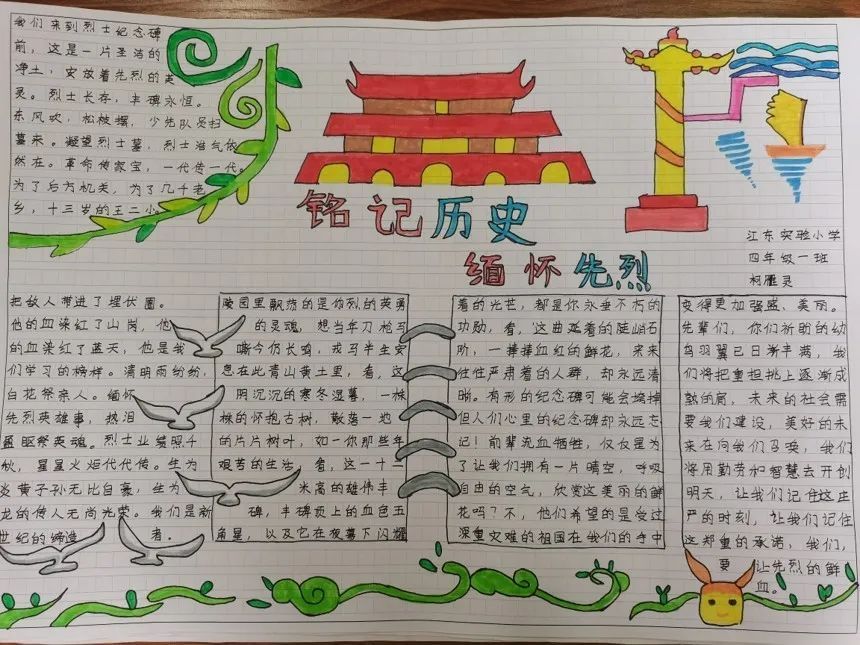 我们来到烈士纪念碑
前，这是一片圣洁的
净土，安放着先烈的英
灵。烈士长存，丰碑永恒。
东风吹，松枝摆，少先队员扫
墓来。凝望烈士墓，烈士浩气依
然在。革命传家宝，一代传一代。
为了后方机关，为了几千老
乡，十三岁的王二小
铭记历史
缅怀先烈
江东实验小学
四年级一班
柯雁灵
把敌人带进了埋伏圈。
他的血染红了山岗，他
的血染红了蓝天，他是我
们学习的榜样。清明雨纷纷，
白花祭亲人。缅怀
先烈英雄事，热泪
盈眶祭英魂。烈士业绩照千
秋，星星火炬代代传。生为
炎黄子孙无比自豪，生为
龙的传人无尚光荣。我们是新
世纪的缔造者。
陵园里飘荡的是你烈的英勇
的灵魂，想当年刀枪马
嘶今仍长鸣，戎马半生安
息在此青山黄土里，看，这
阴沉沉的寒冬湿暮，一株
株的怀抱古树，散落一地
的片片树叶，如一你那些年
艰苦的生活。看，这一十一
米高的雄伟丰
碑，丰碑顶上的血色五
角星，以及它在夜幕下闪耀
着的光芒，都是你永垂不朽的
功勋，看，这曲延着的陡峭石
阶，一捧捧血红的鲜花，来来
往往严肃着的人群，却永远清
晰。有形的纪念碑可能会塌掉
但人们心里的纪念碑却永远忘
记！前辈流血牺牲，仅仅是为
了让我们拥有一片晴空，呼吸
自由的空气，欣赏这美丽的鲜
花吗？不，他们希望的是受过
深重灾难的祖国在我们的手中
变得更加强盛、美丽。
先辈们，你们祈盼的幼
鸟羽翼已日渐丰满，我
们将把重担挑上逐渐成
熟的肩，未来的社会需
要我们建设，美好的未
来在向我们召唤，我们
将用勤劳和智慧去开创
明天，让我们记住这庄
严的时刻，让我们记住
这郑重的承诺，我们，
要让先烈的鲜
血。